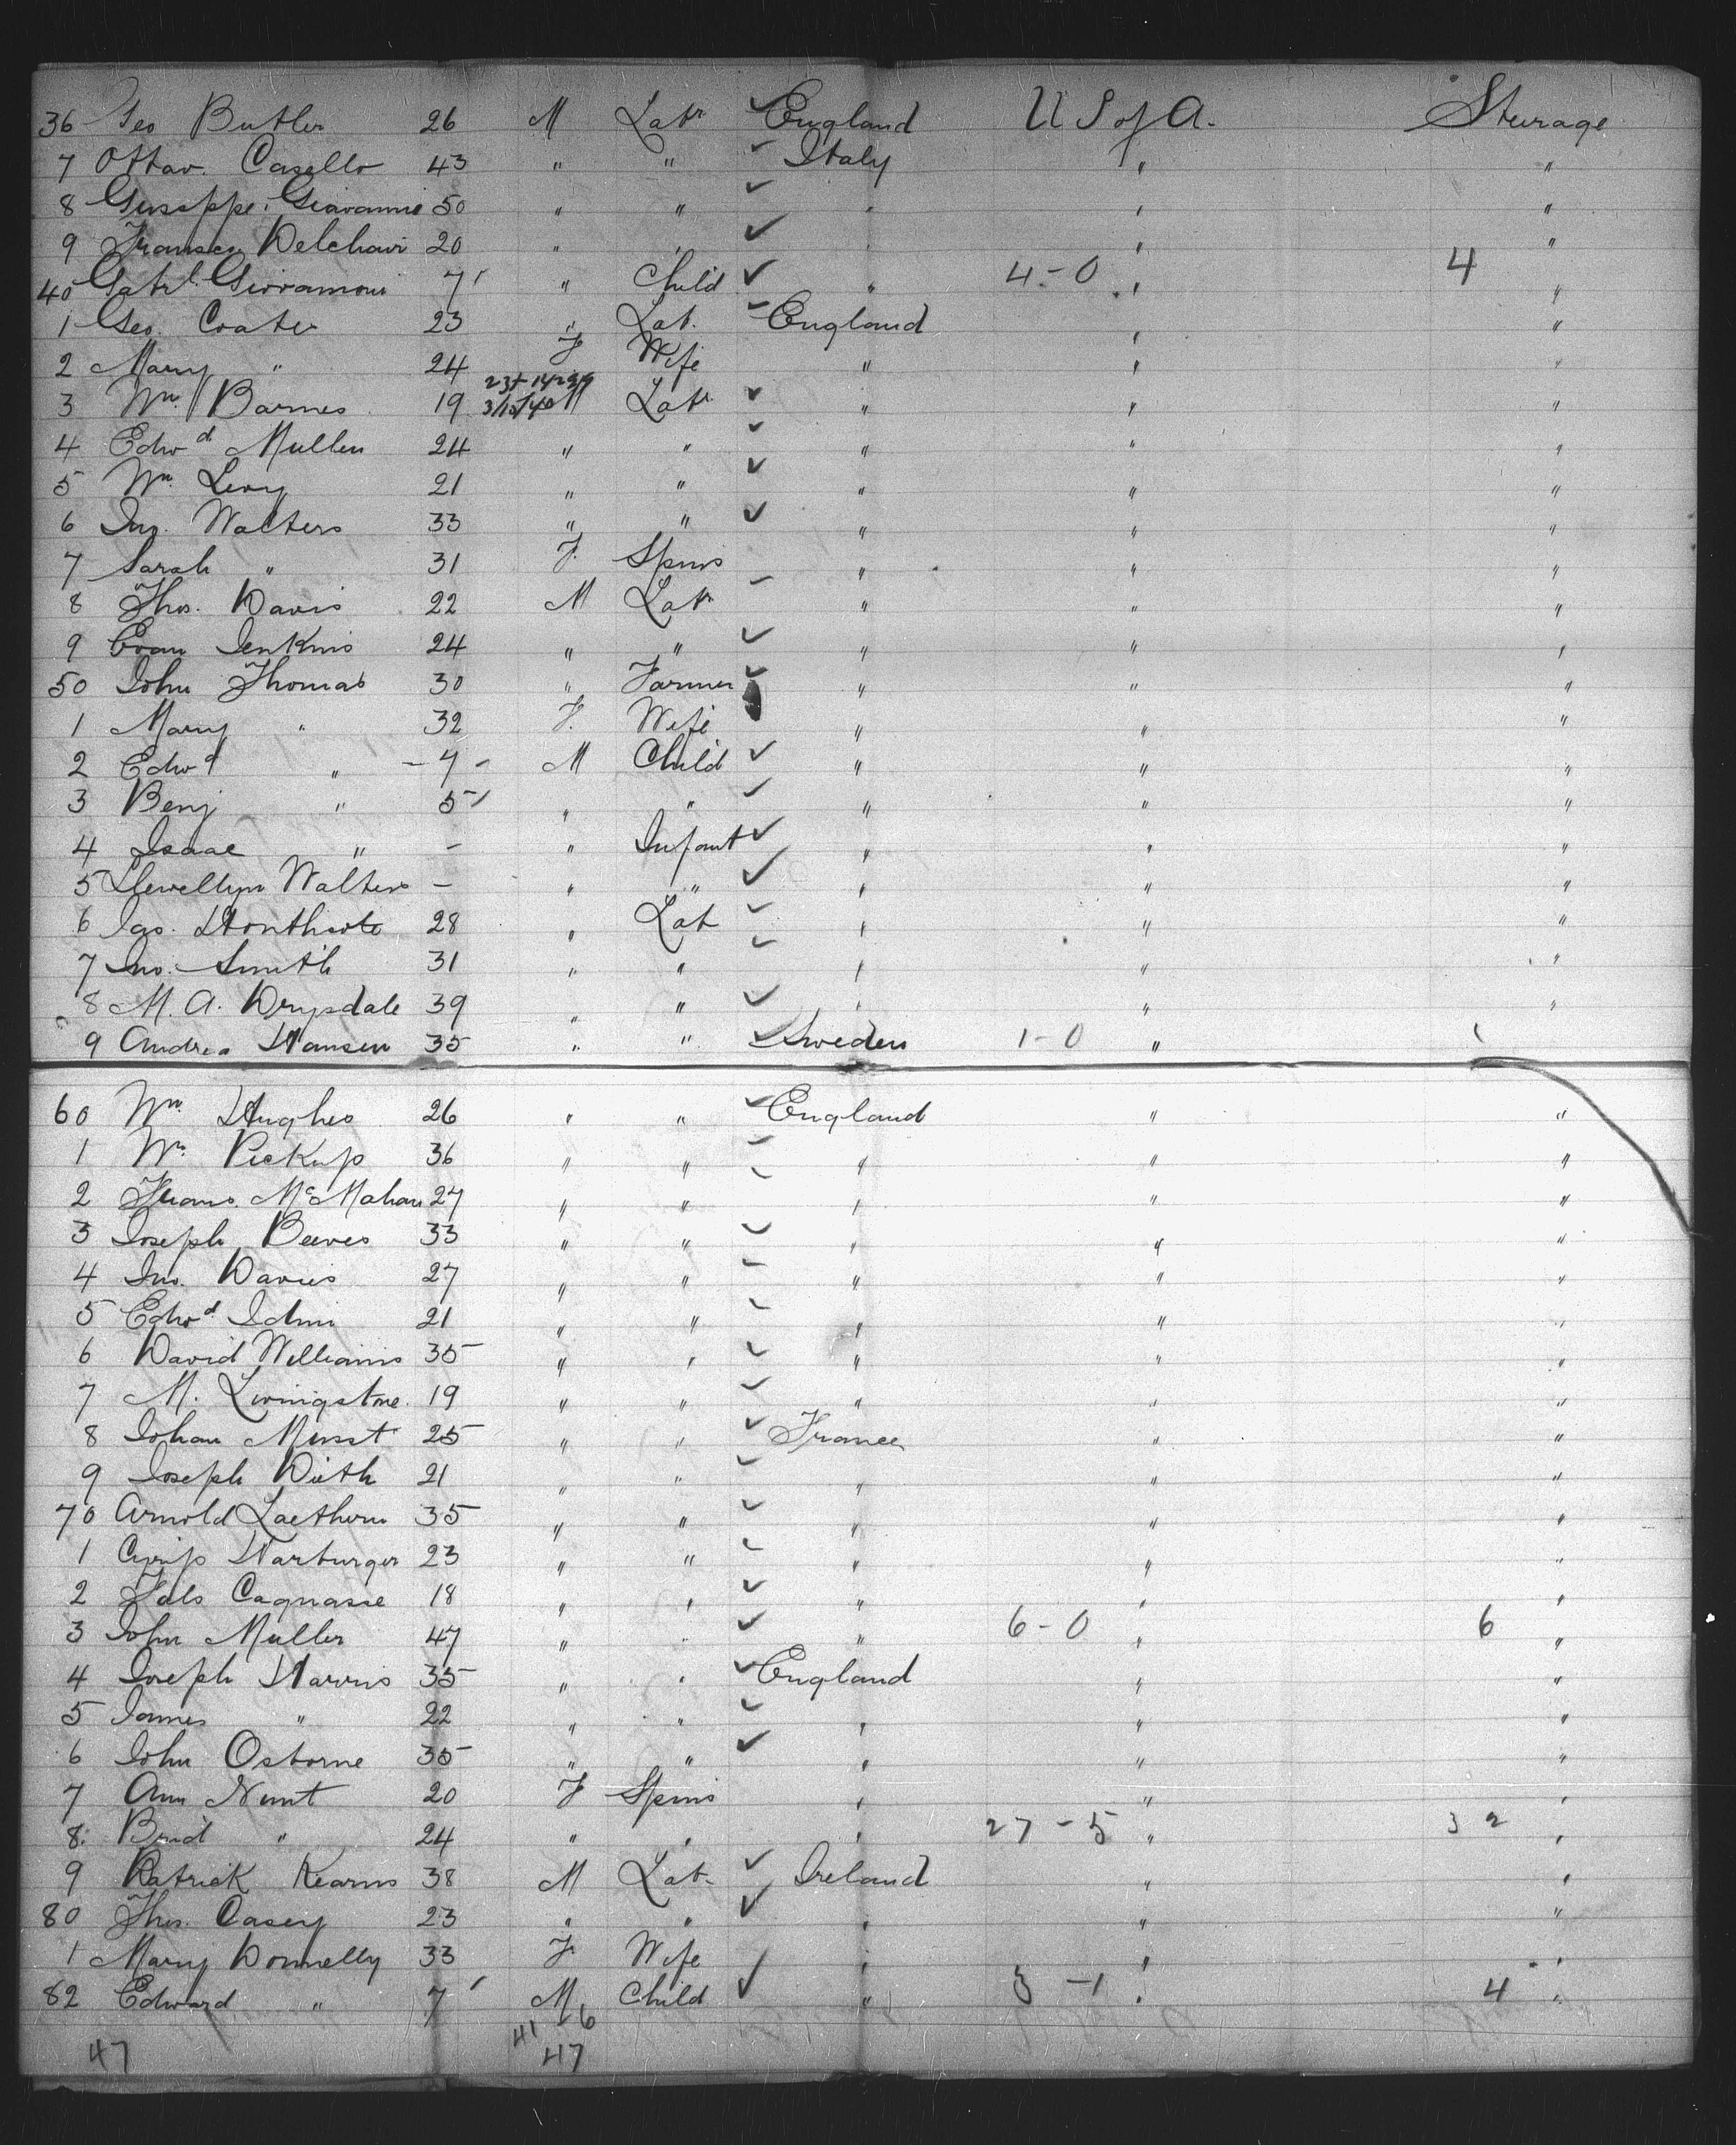 36 Geo Butler 26 M Labr ✓ England U S of A. Steerage
7 Ottav. Casello 43 " " ✓ Italy " "
8 Guiseppe Giovanni 50 " " ✓ " " "
9 Delchavi 20 " " ✓ " " "
40 Gabrl. Giovannoni 7 " Child ✓ " 4-0 " 4 "
1 Geo. Coates 23 " Lab. ✓ England " "
2 Mary " 24 F Wife " " "
3 Wm Barnes 19 M Labr ✓ " " "
4 Edwd Mullen 24 " " ✓ " " "
5 Wm Levy 21 " " ✓ " " "
6 Jno. Walters 33 " " ✓ " " "
7 Sarah " 31 F. Spins " " "
8 Thos. Davis 22 M Labr ✓ " " "
9 Evan Jenkins 24 " " ✓ " " "
50 John Thomas 30 " Farmer ✓ " " "
1 Mary " 32 F. Wife " " "
2 Edwd " - 7 - M Child ✓ " " "
3 Benj " 5 " " ✓ " " "
4 Isaac " - " Infant ✓ " " "
5 Llewellyn Walters - " " ✓ " " "
6 Jas. 28 " Lab ✓ " " "
7 Jno. Smith 31 " " ✓ " " "
8 M. A. Drysdale 39 " " ✓ " " "
9 Andrea Hansen 35 " " ✓ Sweden 1-0 " 1
60 Wm Hughes 26 " " ✓ England " "
1 Wm Pickup 36 " " ✓ " " "
2 Frans. McMahan 27 " " ✓ " " "
3 Joseph Beeves 33 " " ✓ " " "
4 Jno. Davies 27 " " ✓ " " "
5 Edwd 21 " " ✓ " " "
6 David Williams 35 " " ✓ " " "
7 M. Livingstone 19 " " ✓ " " "
8 Johan Musst 25 " " ✓ France " "
9 Joseph Dieth 21 " " ✓ " " "
70 Arnold Laethern 35 " " ✓ " " "
1 Harburger 23 " " ✓ " " "
2 Cagnasse 18 " " ✓ " " "
3 John Muller 47 " " ✓ " 6-0 " 6 "
4 Joseph Harris 35 " " ✓ England " "
5 James " 22 " " ✓ " " "
6 John Osborne 35 " " ✓ " " "
7 Ann Nunt 20 F Spins " " "
8 Brid " 24 " " " 27-5 " 32 "
9 Patrick Kearns 38 M Lab. ✓ Ireland " "
80 Thos. Casey 23 " " ✓ " " "
1 Mary Donnelly 33 F Wife ✓ " " "
82 Edward " 7 M Child ✓ " 3-1 " 4 "
41 6
47 47